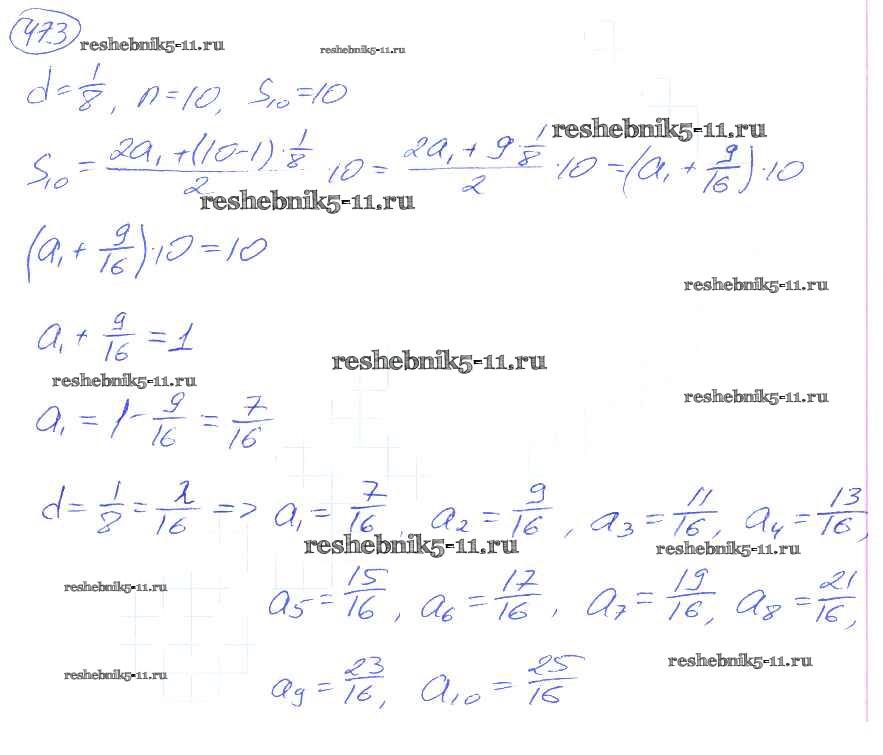 473 reshebnik5-11.ru reshebnik5-11.ru
d = 1/8, n = 10, S₁₀ = 10
reshebnik5-11.ru
S₁₀ = (2a₁ + (10-1)·1/8)/2 · 10 = (2a₁ + 9·1/8)/2 · 10 = (a₁ + 9/16)·10
reshebnik5-11.ru
(a₁ + 9/16)·10 = 10
reshebnik5-11.ru
a₁ + 9/16 = 1
reshebnik5-11.ru
reshebnik5-11.ru
reshebnik5-11.ru
a₁ = 1 - 9/16 = 7/16
d = 1/8 = 2/16 => a₁ = 7/16, a₂ = 9/16, a₃ = 11/16, a₄ = 13/16,
reshebnik5-11.ru reshebnik5-11.ru
reshebnik5-11.ru
a₅ = 15/16, a₆ = 17/16, a₇ = 19/16, a₈ = 21/16,
reshebnik5-11.ru reshebnik5-11.ru
a₉ = 23/16, a₁₀ = 25/16